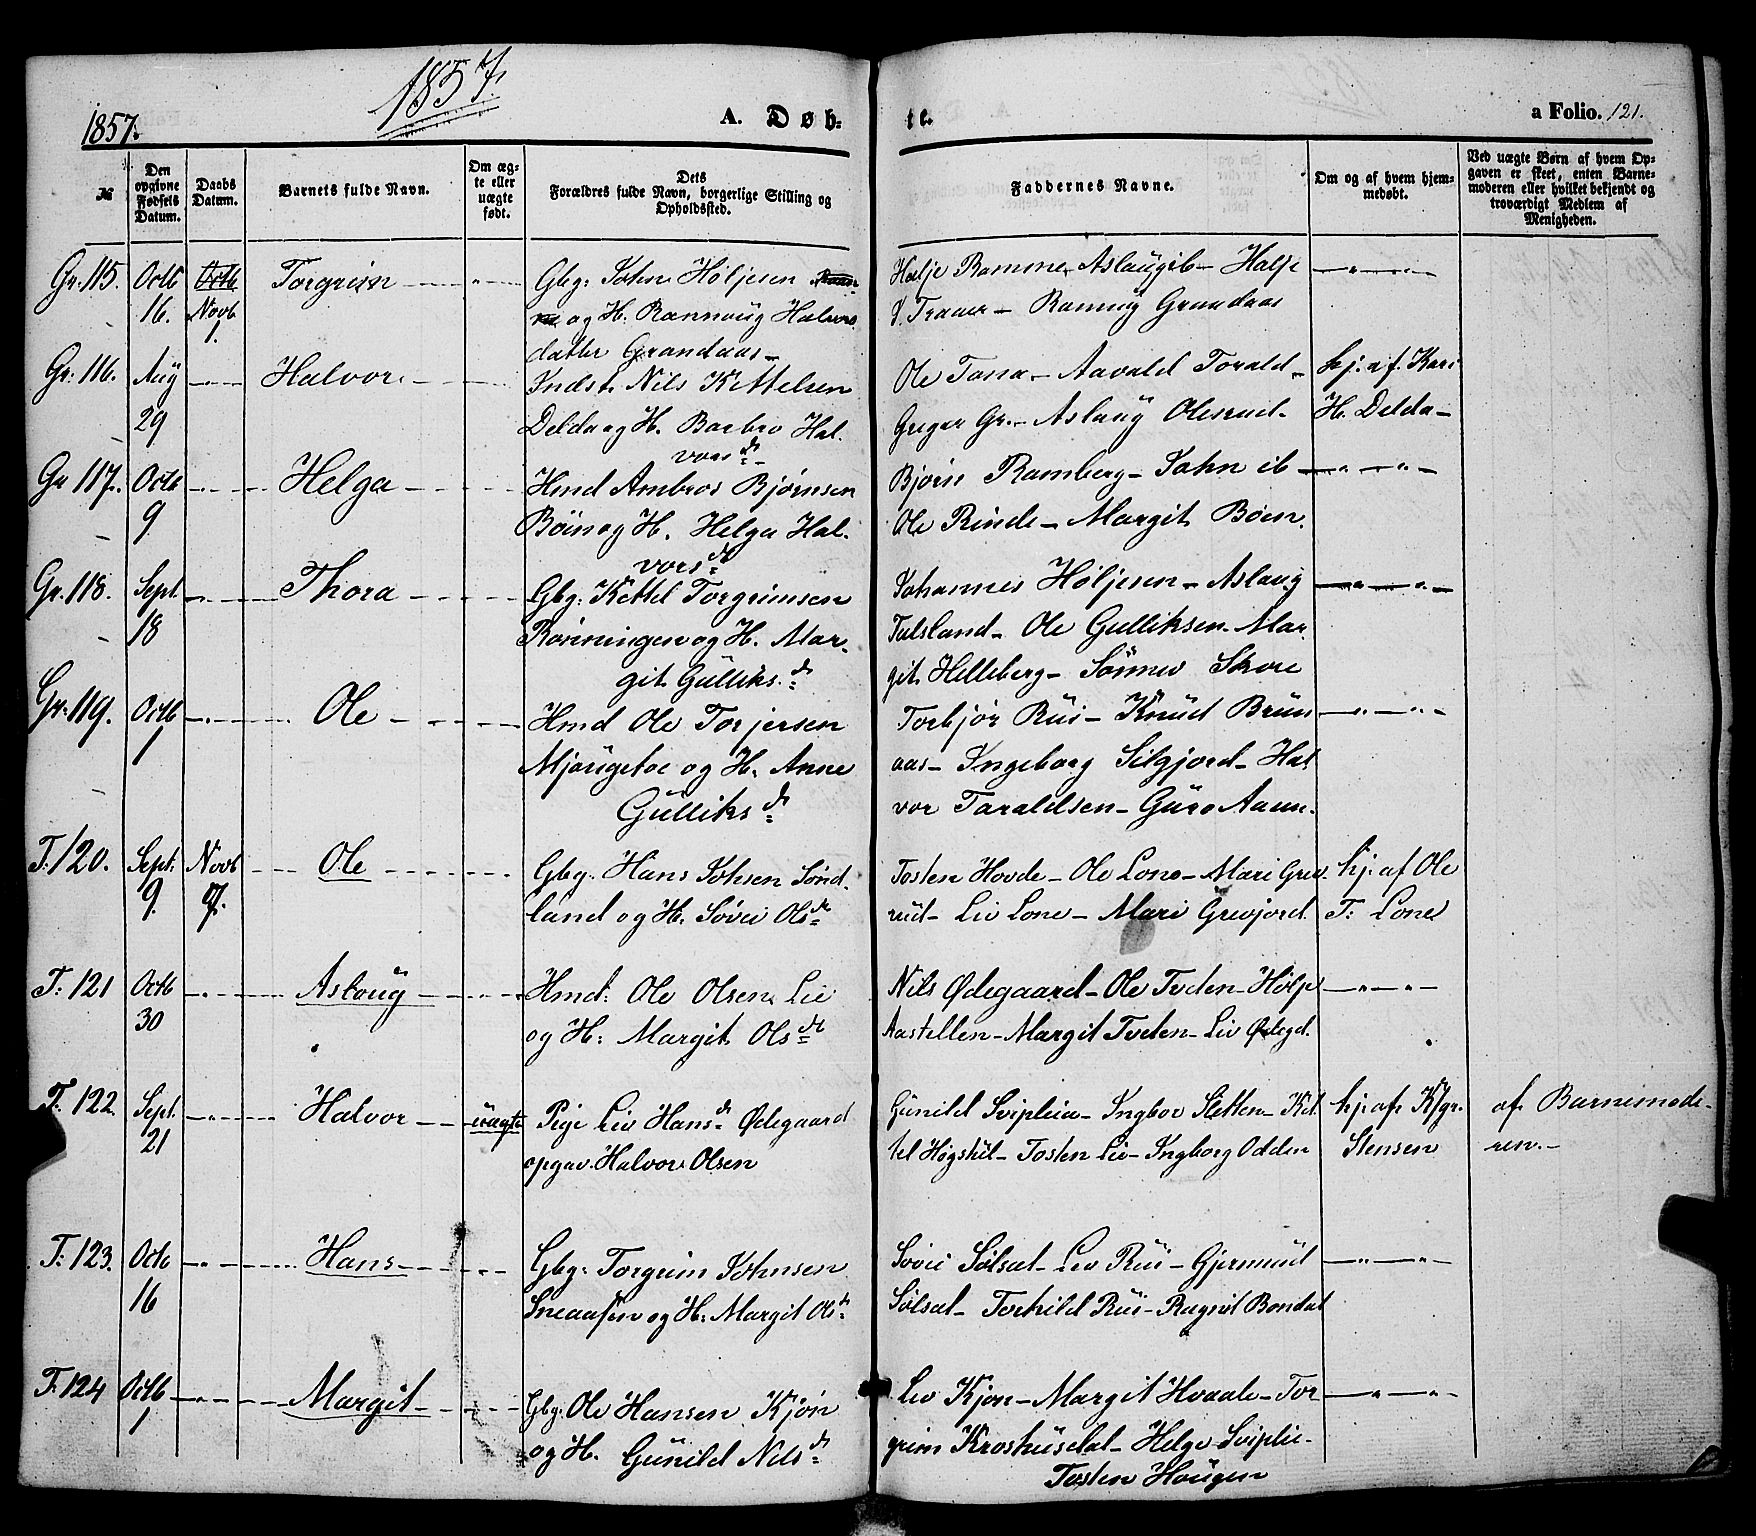 1857.
1857.
A. Døb-
te.
a Folio. 121.
№
Den opgivne Fødsels Datum.
Daabs Datum.
Barnets fulde Navn.
Om ægte eller uægte født.
Dets Forældres fulde Navn, borgerlige Stilling og Opholdssted.
Faddernes Navne.
Om og af hvem hjemmedøbt.
Ved uægte Børn af hvem Opgaven er skeet, enten Barnemoderen eller hvilket bekjendt og troværdigt Medlem af Menigheden.
Gr. 115. Octb 16. Octb Novb 1. Torgrim
Gbg: John Høljesen
og H. Rannoug Halvors
datter Grandaas
Halje Ramme Aslaug ib - Halje
Traaer - Rannug Grandaas
Gr. 116. Aug 29 Halvor
Indst. Nils Kittelsen
Delda og H. Barbro Hal.
vorsd
Ole Tassa - Aavald Torald -
Gregar Gr. - Aslaug Olesrud.
hj. af Kari
H. Delda -
Gr 117. Octb 9 Helga
Hmd Ambros Bjørnsen
Böin og H. Helga Hal.
vorsd
Bjørn Ramberg - John ib
Ole Rinde - Margit Böen.
Gr. 118. Sept. 18 Thora
Gbg: Kittel Torgrimsen
Rønningen og H. Mar-
git Gulliks.d
Johannes Høljesen - Aslaug
Tulsland - Ole Gulliksen - Mar
git Helleberg - Sönnev Skore
Gr. 119. Octb 1 Ole
Hmd Ole Torjersen
og H. Anne
Gulliksd
Torbjör Rui - Knud Brun
aas - Ingeborg Silgjord - Hal
vor Taraldsen - Guro Aasn.
T: 120. Sept: 9. Novb 7. Ole
Gbg. Hans Johsen Sønd.
land og H. Søvei Olsd
Tosten Hovde - Ole Lone - Mari Grev
rud - Liv Lone - Mari Grevjord.
hj. af Ole
T: Lone
T: 121 Octb 30 Aslaug
Hmd: Ole Olsen Lie
og H: Margit Olsd
Nils Ødegaard - Ole Tveten - Hølje
Aastillen - Margit Tveten - Liv Ødegd.
T: 122 Sept. 21 Halvor uægte
Pige Liv Hansd Ødegaard
opgav. Halvor Olsen
Gunild Sviplie - Ingbor Sletten - Kit
tel Høgstul - Tosten Lie - Ingborg Odden
hj. af Kgr.
Stensen
af Barnemode-
ren. -
T: 123. Octb 16 Hans
Gbg: Torgrim Johnsen
Sneaasen og H: Margit Olsd
Søvei Sølsat - Liv Rui - Gjermund
Sølsat - Torhild Rui - Ragnil Bondal
T: 124 Octb 1 Margit
Gbg: Ole Hansen Kjøn
og H. Gunild Nilsd
Liv Kjøn - Margit Hvaale - Tor
grim Kroshusdal - Helge Sviplie -
Tosten Haugen